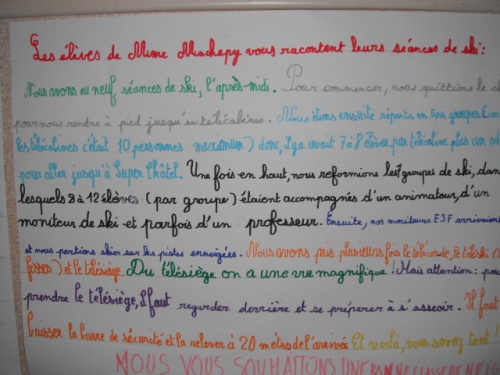 Les élèves de Mme Machepy vous racontent leurs séances de ski :
Nous avons eu neuf séances de ski, l'après-midi. Pour commencer, nous quittions le
pour nous rendre à pied jusqu'au télécabines. Nous étions ensuite répartis en
les télécabines c'était 10 personnes maximum) donc, il y avait 7 à 8 élèves par télécabine, plus un
pour aller jusqu'à Super Châtel. Une fois en haut, nous reformions les groupes de ski, dans
lesquels 8 à 12 élèves (par groupe) étaient accompagnés d'un animateur, d'un
moniteur de ski et parfois d'un professeur. Ensuite, nos moniteurs ESF arrivaient
et nous partions skier sur les pistes enneigées. Nous avons pris plusieurs fois le télécorde, le téléski
et le télésiège. Du télésiège on a une vue magnifique ! Mais attention : pour
prendre le télésiège, il faut regarder derrière et se préparer à s'asseoir. Il faut
baisser la barre de sécurité et la relever à 20 mètres de l'arrivée. Et voilà, vous savez tout !
MOUS VOUS SOUHAITONS UNE BONNE CLASSE DE NEIGE